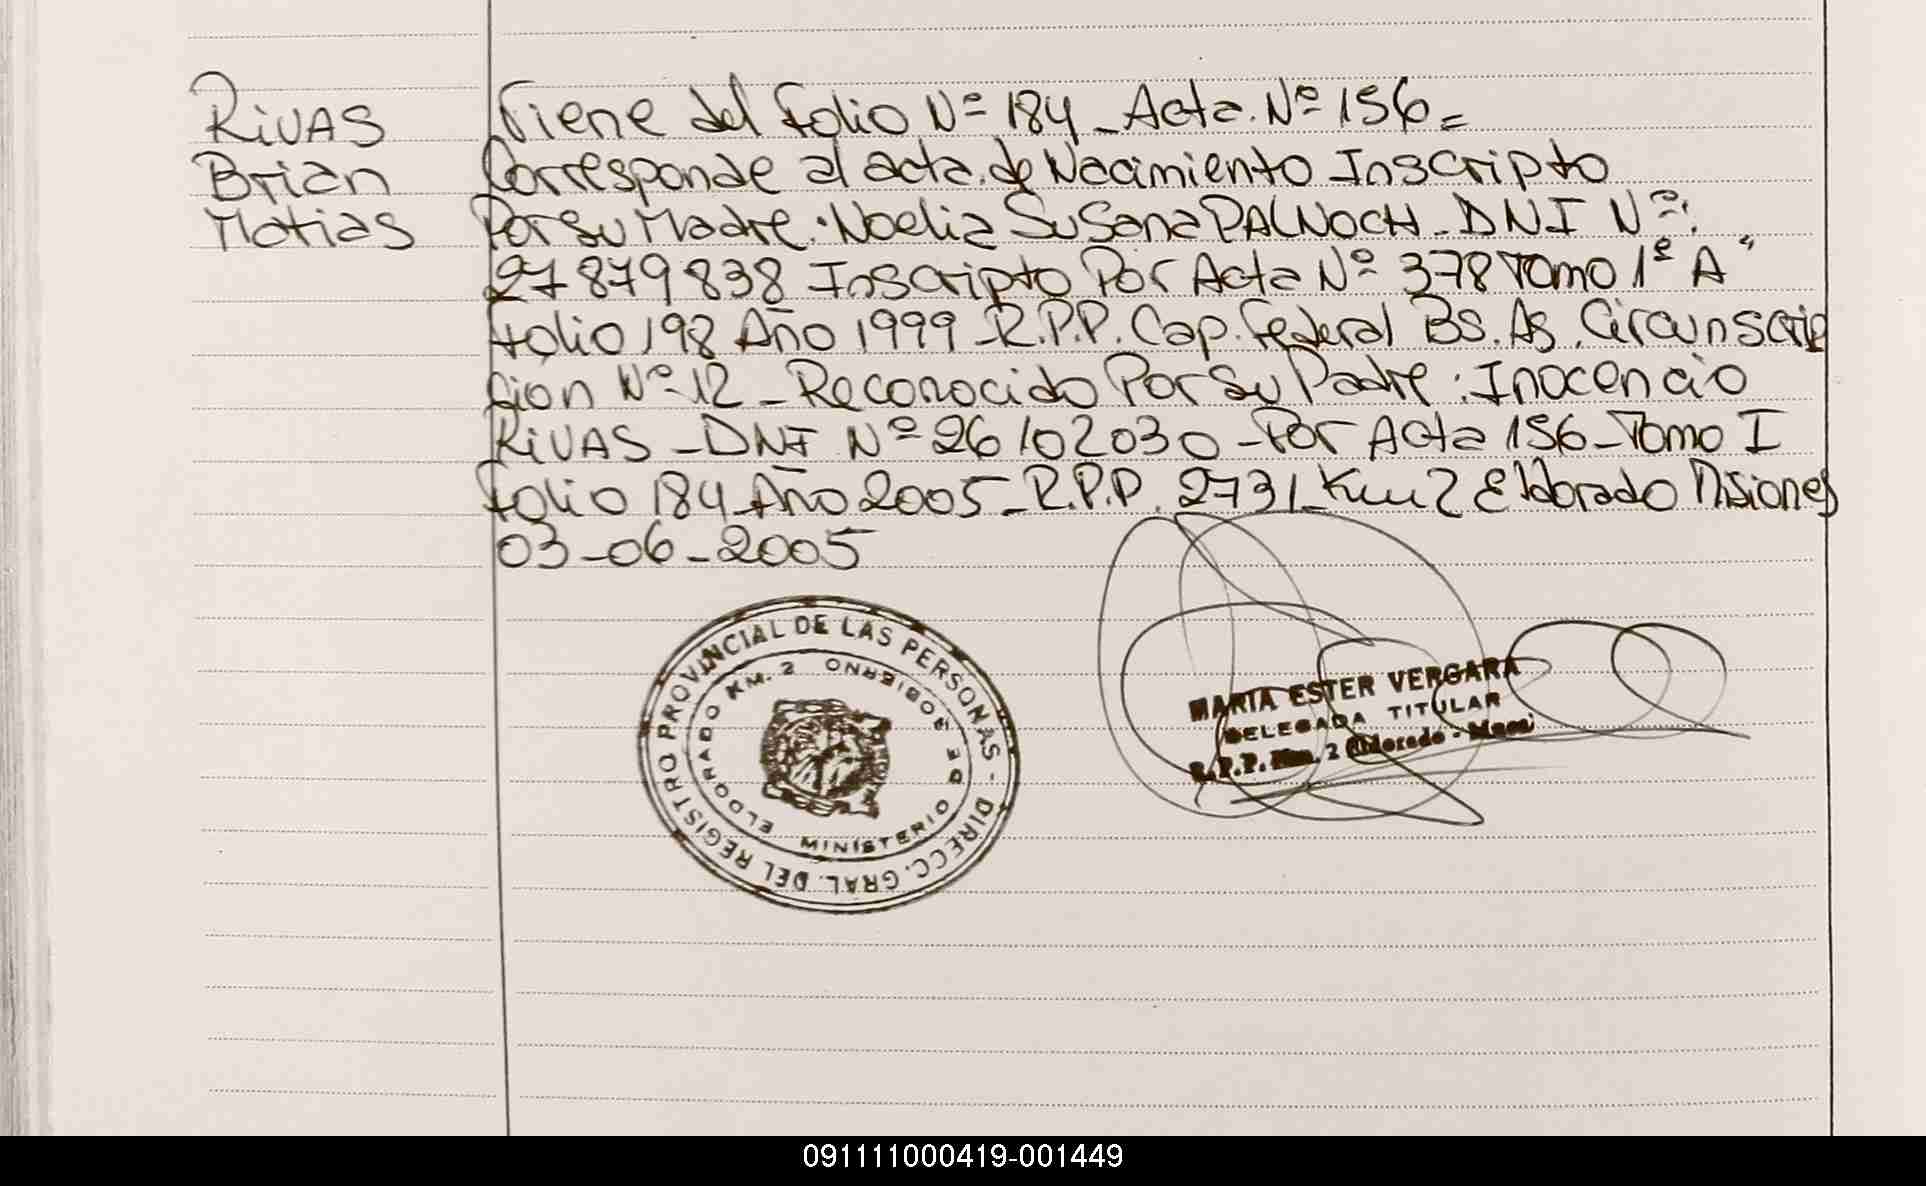 RiVAS
Brian
Matias
Viene del folio Nº 184 - Acta. Nº 156 =
Corresponde al acta. de Nacimiento Inscripto
Por su Madre: Noelia Susana PALNOCH - DNI Nº:
27879838 Inscripto Por Acta Nº 378 Tomo 1º A"
folio 198 Año 1999 - R.P.P. Cap. Federal Bs. As. Circunscrip
cion Nº 12 - Reconocido Por su Padre: Inocencio
RiVAS - DNI Nº 26102030 - Por Acta 156 - Tomo I
folio 184 Año 2005 - R.P.P. 2731 Km 2 Eldorado Misiones
03-06-2005
DIRECC. GRAL. DEL REGISTRO PROVINCIAL DE LAS PERSONAS -
MINISTERIO DE GOBIERNO
ELDORADO KM. 2
MARIA ESTER VERGARA
DELEGADA TITULAR
R.P.P. Km. 2 Eldorado - Mnes
091111000419-001449